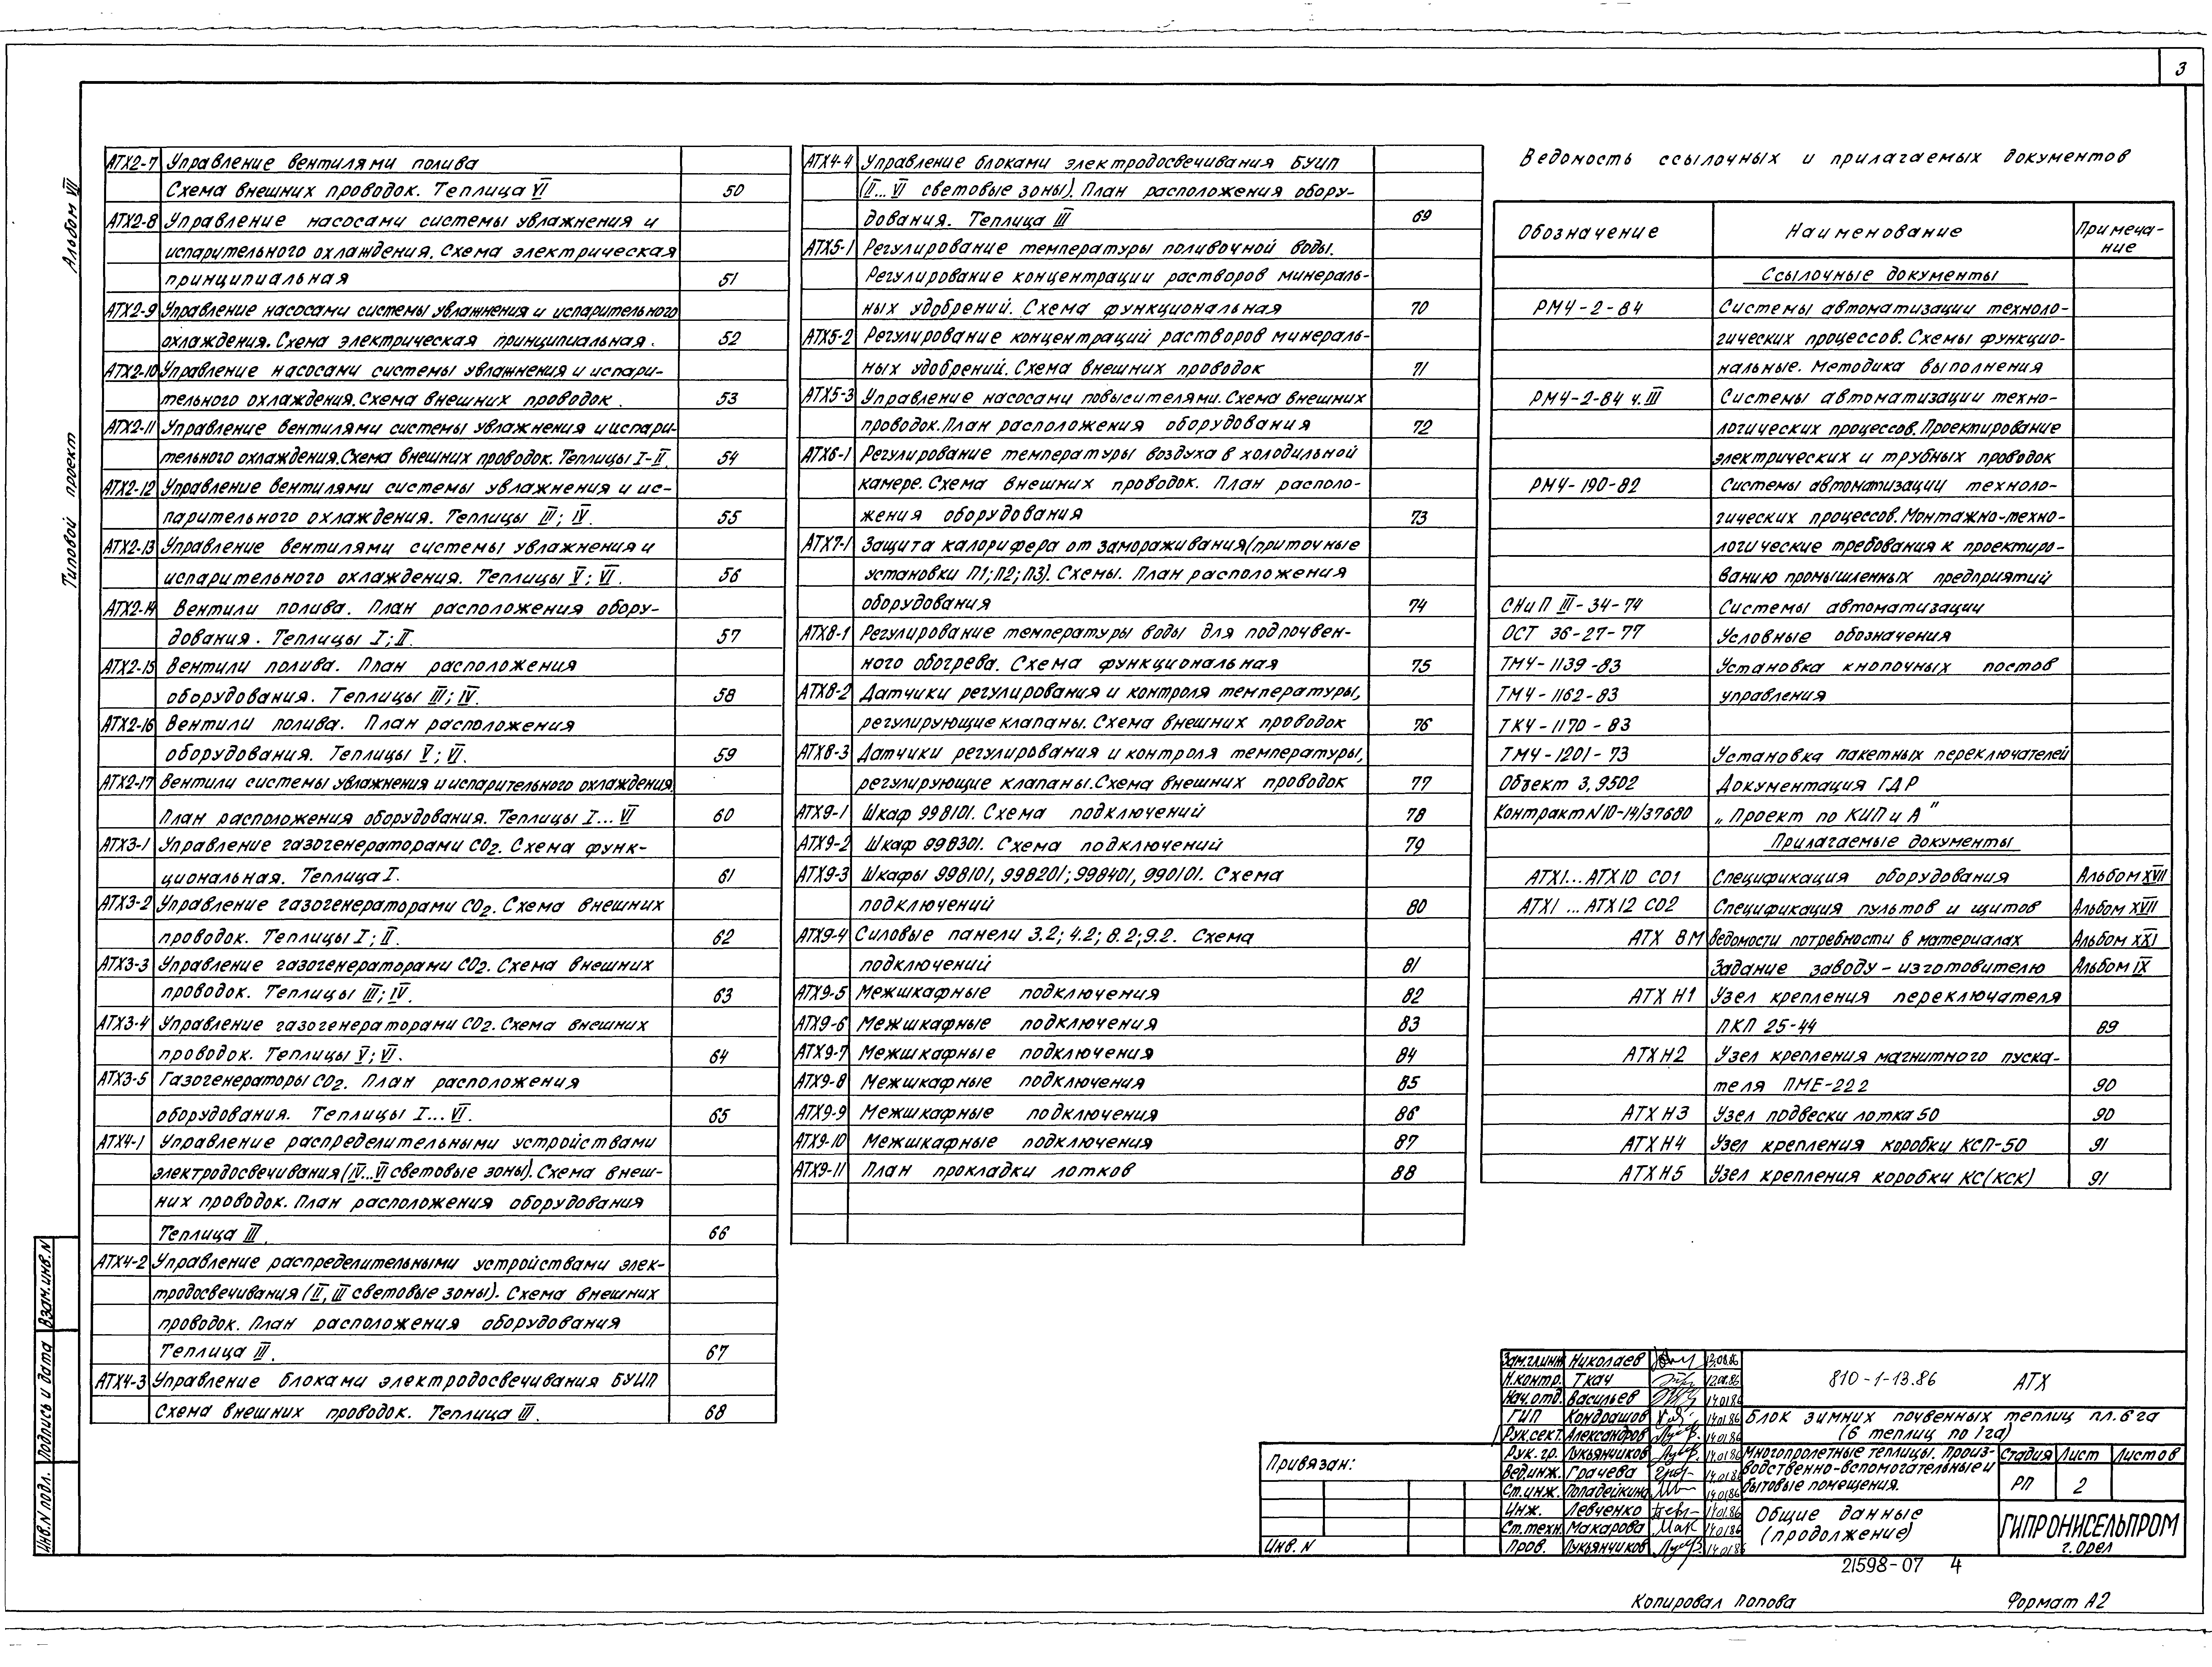 3
Альбом VII
Типовой проект
АТХ2-7 Управление вентилями полива
Схема внешних проводок. Теплица VI 50
АТХ2-8 Управление насосами системы увлажнения и
испарительного охлаждения. Схема электрическая
принципиальная 51
АТХ2-9 Управление насосами системы увлажнения и испарительного
охлаждения. Схема электрическая принципиальная. 52
АТХ2-10 Управление насосами системы увлажнения и испари-
тельного охлаждения. Схема внешних проводок. 53
АТХ2-11 Управление вентилями системы увлажнения и испари-
тельного охлаждения. Схема внешних проводок. Теплицы I-II 54
АТХ2-12 Управление вентилями системы увлажнения и ис-
парительного охлаждения. Теплицы III; IV. 55
АТХ2-13 Управление вентилями системы увлажнения и
испарительного охлаждения. Теплицы V; VI. 56
АТХ2-14 Вентили полива. План расположения обору-
дования. Теплицы I; II. 57
АТХ2-15 Вентили полива. План расположения
оборудования. Теплицы III; IV. 58
АТХ2-16 Вентили полива. План расположения
оборудования. Теплицы V; VI. 59
АТХ2-17 Вентили системы увлажнения и испарительного охлаждения.
План расположения оборудования. Теплицы I...VI 60
АТХ3-1 Управление газогенераторами СО2. Схема функ-
циональная. Теплица I. 61
АТХ3-2 Управление газогенераторами СО2. Схема внешних
проводок. Теплицы I; II. 62
АТХ3-3 Управление газогенераторами СО2. Схема внешних
проводок. Теплицы III; IV. 63
АТХ3-4 Управление газогенераторами СО2. Схема внешних
проводок. Теплицы V; VI. 64
АТХ3-5 Газогенераторы СО2. План расположения
оборудования. Теплицы I...VI. 65
АТХ4-1 Управление распределительными устройствами
электродосвечивания (IV...VI световые зоны). Схема внеш-
них проводок. План расположения оборудования
Теплица III. 66
АТХ4-2 Управление распределительными устройствами элек-
тродосвечивания (II, III световые зоны). Схема внешних
проводок. План расположения оборудования
Теплица III. 67
АТХ4-3 Управление блоками электродосвечивания БУИП
Схема внешних проводок. Теплица III. 68
АТХ4-4 Управление блоками электродосвечивания БУИП
(II...VI световые зоны). План расположения обору-
дования. Теплица III 69
АТХ5-1 Регулирование температуры поливочной воды.
Регулирование концентрации растворов минераль-
ных удобрений. Схема функциональная 70
АТХ5-2 Регулирование концентраций растворов минераль-
ных удобрений. Схема внешних проводок 71
АТХ5-3 Управление насосами повысителями. Схема внешних
проводок. План расположения оборудования 72
АТХ6-1 Регулирование температуры воздуха в холодильной
камере. Схема внешних проводок. План располо-
жения оборудования 73
АТХ7-1 Защита калорифера от замораживания (приточные
установки П1; П2; П3). Схемы. План расположения
оборудования 74
АТХ8-1 Регулирование температуры воды для подпочвен-
ного обогрева. Схема функциональная 75
АТХ8-2 Датчики регулирования и контроля температуры,
регулирующие клапаны. Схема внешних проводок 76
АТХ8-3 Датчики регулирования и контроля температуры,
регулирующие клапаны. Схема внешних проводок 77
АТХ9-1 Шкаф 998101. Схема подключений 78
АТХ9-2 Шкаф 998301. Схема подключений 79
АТХ9-3 Шкафы 998101, 998201; 998401, 990101. Схема
подключений 80
АТХ9-4 Силовые панели 3.2; 4.2; 8.2; 9.2. Схема
подключений 81
АТХ9-5 Межшкафные подключения 82
АТХ9-6 Межшкафные подключения 83
АТХ9-7 Межшкафные подключения 84
АТХ9-8 Межшкафные подключения 85
АТХ9-9 Межшкафные подключения 86
АТХ9-10 Межшкафные подключения 87
АТХ9-11 План прокладки лотков 88
Ведомость ссылочных и прилагаемых документов
Обозначение Наименование Примеча-
ние
Ссылочные документы
РМ4-2-84 Системы автоматизации техноло-
гических процессов. Схемы функцио-
нальные. Методика выполнения
РМ4-2-84 ч. III Системы автоматизации техно-
логических процессов. Проектирование
электрических и трубных проводок
РМ4-190-82 Системы автоматизации техноло-
гических процессов. Монтажно-техно-
логические требования к проектиро-
ванию промышленных предприятий
СНиП III-34-74 Системы автоматизации
ОСТ 36-27-77 Условные обозначения
ТМ4-1139-83 Установка кнопочных постов
ТМ4-1162-83 управления
ТК4-1170-83
ТМ4-1201-73 Установка пакетных переключателей
Объект 3,9502 Документация ГДР
Контракт N10-14/37680 „Проект по КИП и А"
Прилагаемые документы
АТХ1...АТХ10 СО1 Спецификация оборудования Альбом XVII
АТХ1...АТХ12 СО2 Спецификация пультов и щитов Альбом XVII
АТХ ВМ Ведомости потребности в материалах Альбом XXI
Задание заводу-изготовителю Альбом IX
АТХ Н1 Узел крепления переключателя
ПКП 25-44 89
АТХ Н2 Узел крепления магнитного пуска-
теля ПМЕ-222 90
АТХ Н3 Узел подвески лотка 50 90
АТХ Н4 Узел крепления коробки КСП-50 91
АТХ Н5 Узел крепления коробки КС(КСК) 91
Взам.инв.N
Подпись и дата
Инв.N подл.
Привязан:
Инв. N
Зам.гл.инж Николаев 13.01.86
Н.контр. Ткач 12.01.86
Нач.отд. Васильев 14.01.86
ГИП Кондрашов 14.01.86
Рук.сект. Александров 14.01.86
Рук.гр. Лукьянчиков 14.01.86
Вед.инж. Грачева 14.01.86
Ст.инж. Попадейкина 14.01.86
Инж. Левченко 14.01.86
Ст.техн. Макарова 14.01.86
Пров. Лукьянчиков 14.01.86
810-1-13.86 АТХ
Блок зимних почвенных теплиц пл. 6 га
(6 теплиц по 1га)
Многопролетные теплицы. Произ-
водственно-вспомогательные и
бытовые помещения.
Стадия Лист Листов
РП 2
Общие данные
(продолжение)
ГИПРОНИСЕЛЬПРОМ
г. Орел
21598-07 4
Копировал Попова Формат А2